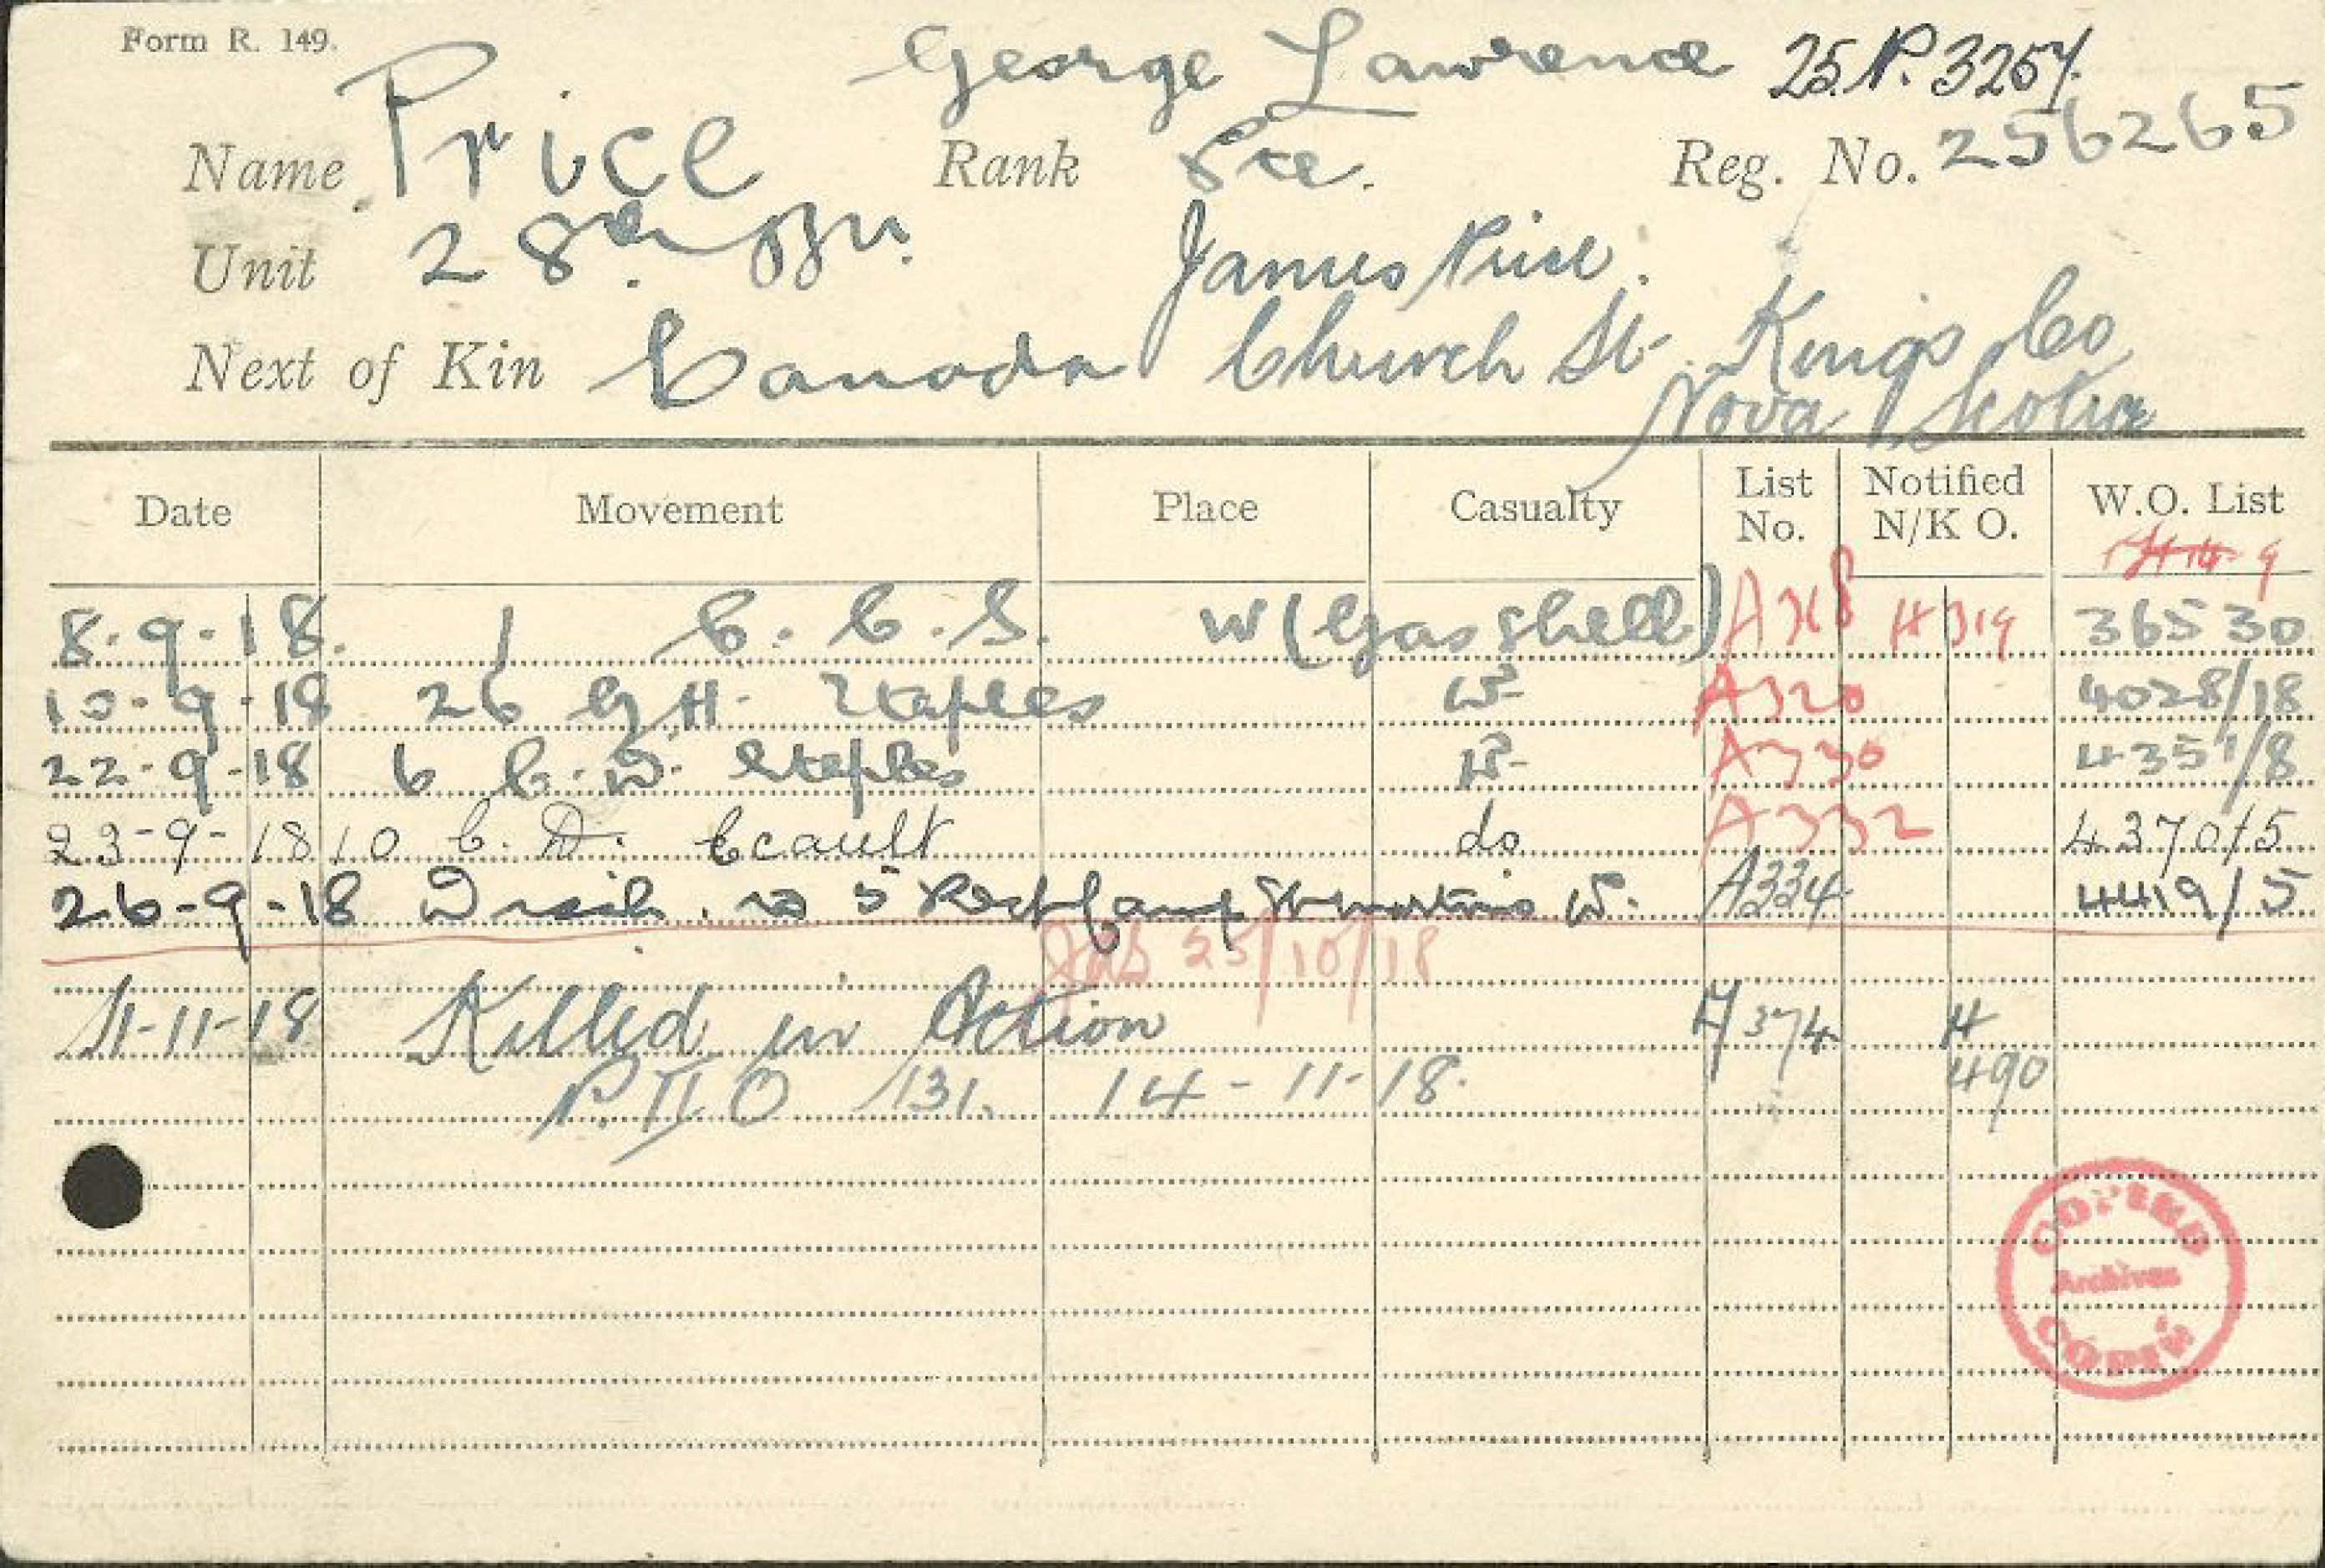 Form R. 149.
George Lawrence 25.P.3257.
Name Price Rank Pte. Reg. No. 256265
Unit 28th Bn. James Price.
Next of Kin Canada Church St. Kings Co
Nova Scotia
Date Movement Place Casualty List No. Notified N/K O. W.O. List
8.9.18. 1 C.C.S. W (Gas Shell) A318 H319 36530
10-9-18 26 G.H. Etaples W A320 4028/18
22-9-18 6 C.D. Etaples W A330 4351/8
23-9-18 10 C.D. Ecault do A332 4370/5
26-9-18 5 Rest Camp St Martins W. A334 4419/5
25/10/18
11-11-18 Killed in Action A374 H
P.II O 131. 14-11-18. 490
COPIED
Archives
COPIÉ